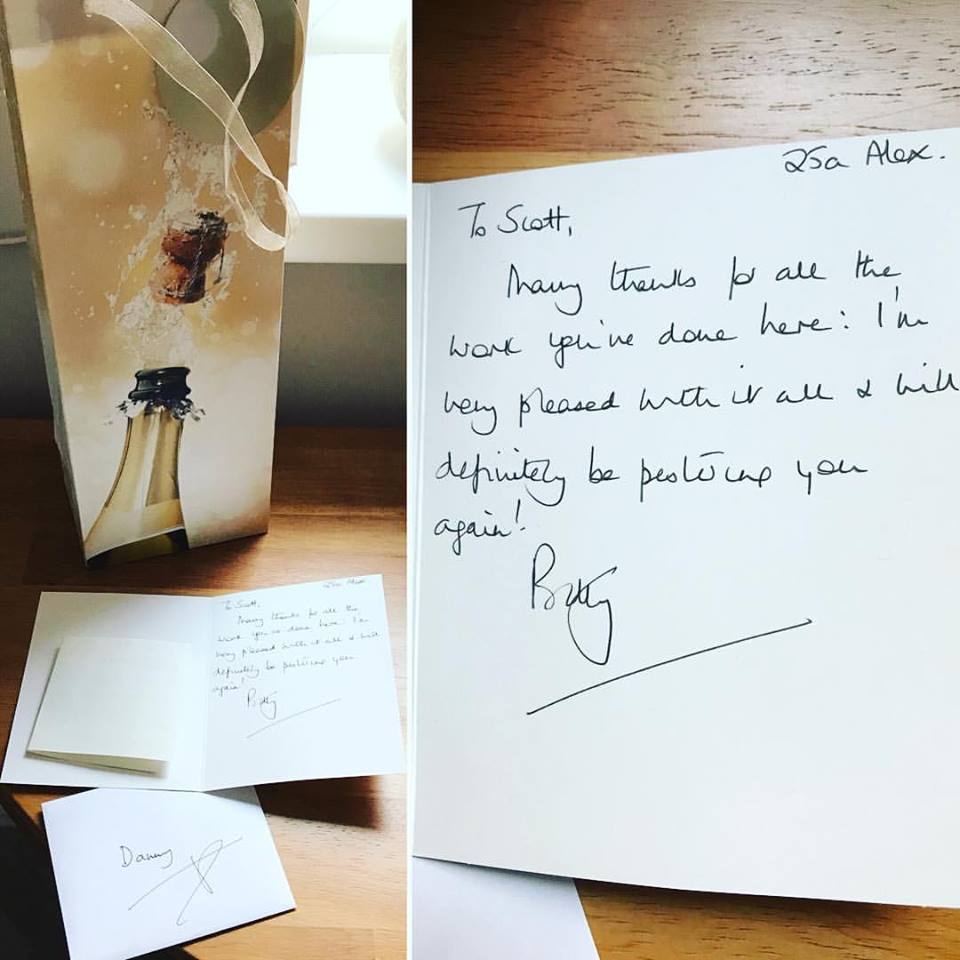 25a Alex.
To Scott,
Many thanks for all the
work you've done here: I'm
very pleased with it all & will
definitely be pestering you
again!
Betty
25a Alex
To Scott,
Many thanks for all the
work you've done here: I'm
very pleased with it all & will
definitely be pestering you
again!
Betty
Danny